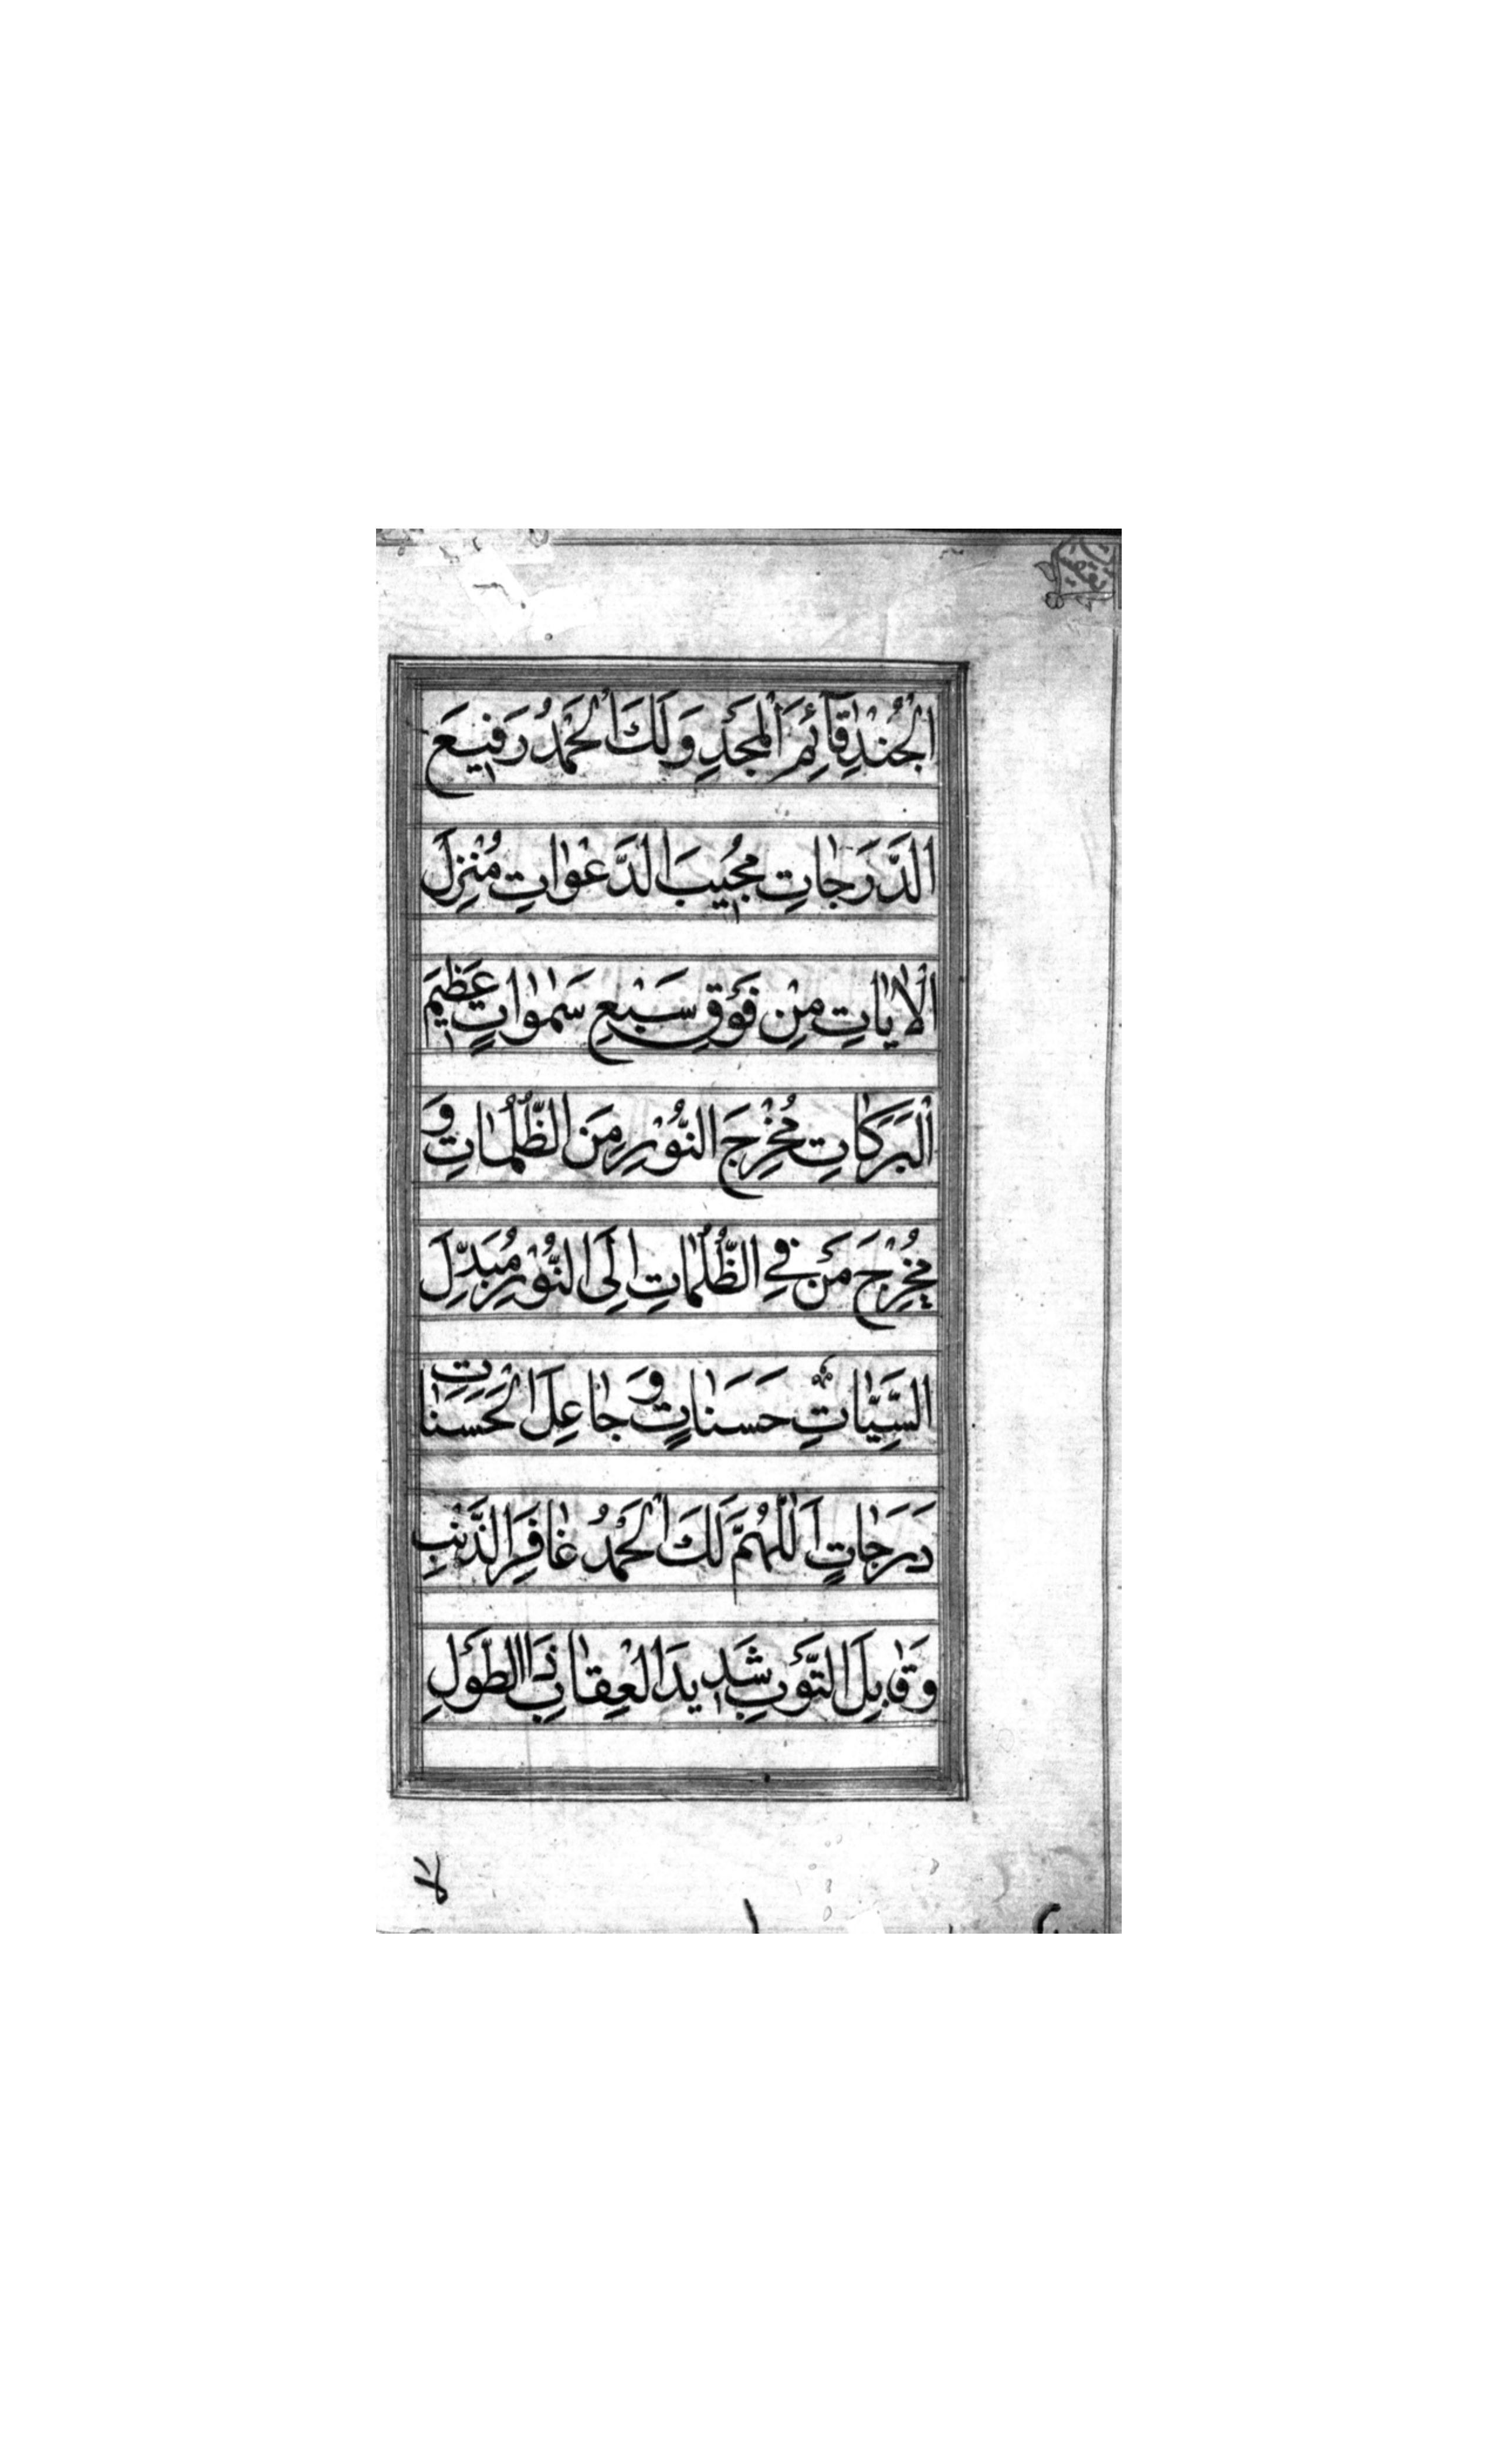 الْجُنْدِ قٰآئِمَ الْمَجْدِ وَلَكَ الْحَمْدُ رَفِيعَ
الدَّرَجٰاتِ مُجِيبَ الدَّعْوٰاتِ مُنْزِلَ
الْاٰيٰاتِ مِنْ فَوْقِ سَبْعِ سَمٰوٰاتٍ عَظِيمَ
الْبَرَكٰاتِ مُخْرِجَ النُّوْرِ مِنَ الظُّلُمٰاتِ وَ
مُخْرِجَ مَنْ فِي الظُّلُمٰاتِ اِلَى النُّوْرِ مُبَدِّلَ
السَّيِّئٰاتِ حَسَنٰاتٍ وَ جٰاعِلَ الْحَسَنٰاتِ
دَرَجٰاتٍ اَللّٰهُمَّ لَكَ الْحَمْدُ غٰافِرَ الذَّنْبِ
وَ قٰابِلَ التَّوْبِ شَدِيدَ الْعِقٰابِ ذَا الطَّوْلِ
لا